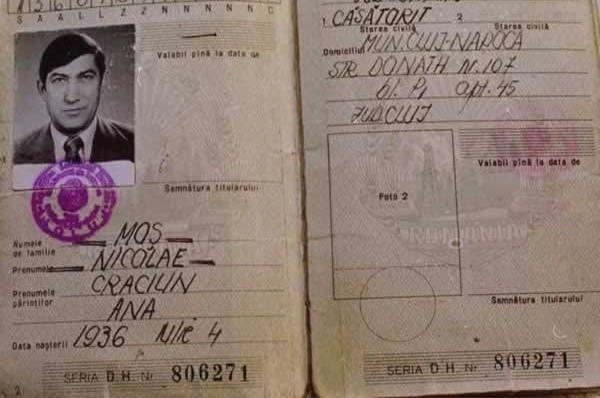 S A A L L Z Z N N N N N C
Valabil pînă la data de
Semnătura titularului
Numele de familie MOȘ
Prenumele NICOLAE
Prenumele părinților CRACILIN
ANA
Data nașterii 1936 4
SERIA D.H. Nr 806271
2
1 CĂSĂTORIT 2
Starea civilă Starea civilă
Domiciliul MUN. CLUJ-NAPOCA
STR DONATH Nr. 107
bl. P1 apt. 45
JUD. CLUJ
Valabil pînă la data de
Foto 2
ROMANIA
Semnătura titularului
SERIA D.H. Nr 806271